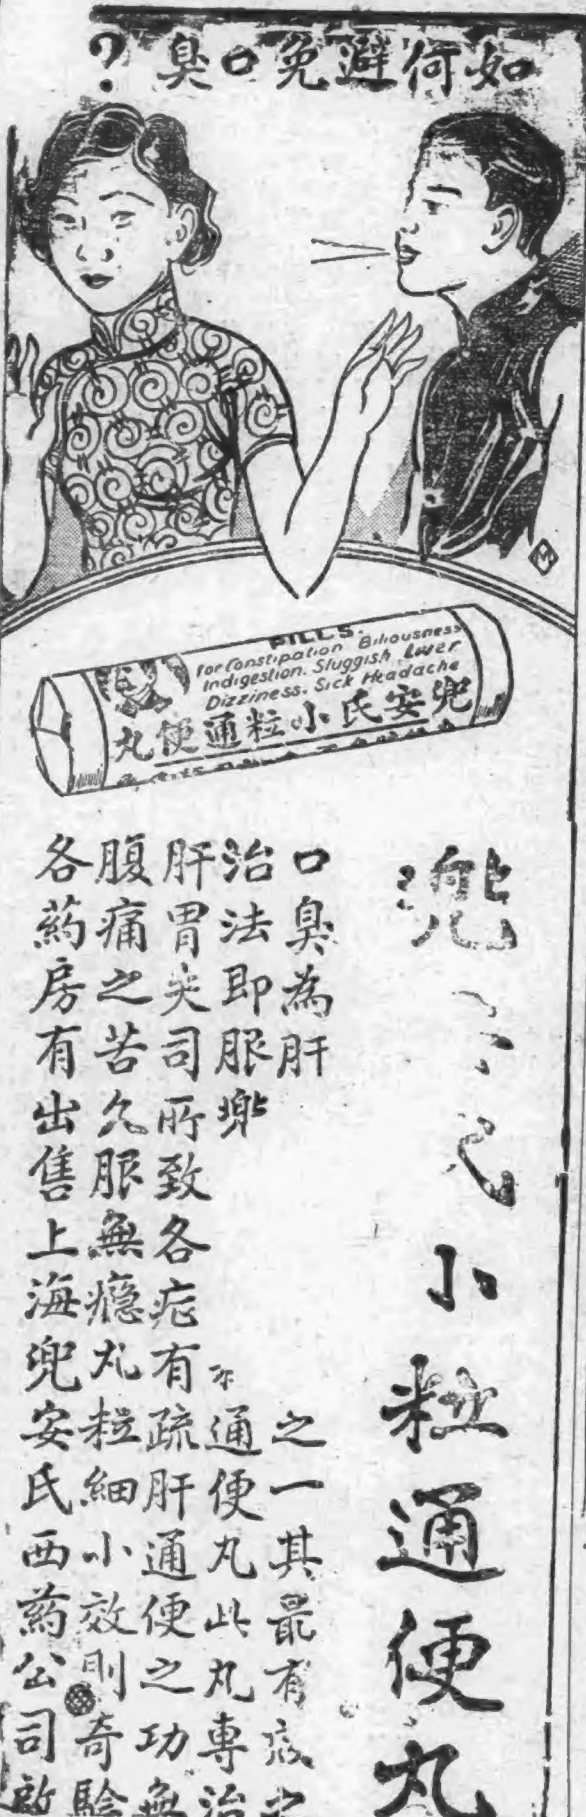 如何避免口臭？
PILLS.
for Constipation Biliousness
Indigestion. Sluggish Liver
Dizziness. Sick Headache
兜安氏小粒通便丸
兜 氏小粒通便丸
口臭為肝 之一其最有效之
治法即服兜 通便丸此丸專治
肝胃失司所致各症有疏肝通便之功無
腹痛之苦久服無癮丸粒細小效則奇驗
各葯房有出售上海兜安氏西葯公司啟